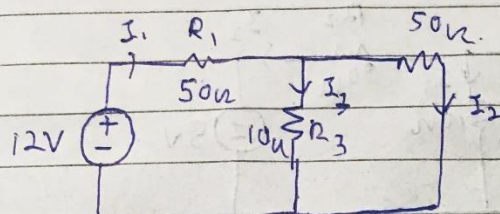 I₁ R₁ 50Ω
50Ω I₃ I₂
12V + - 10Ω R₃